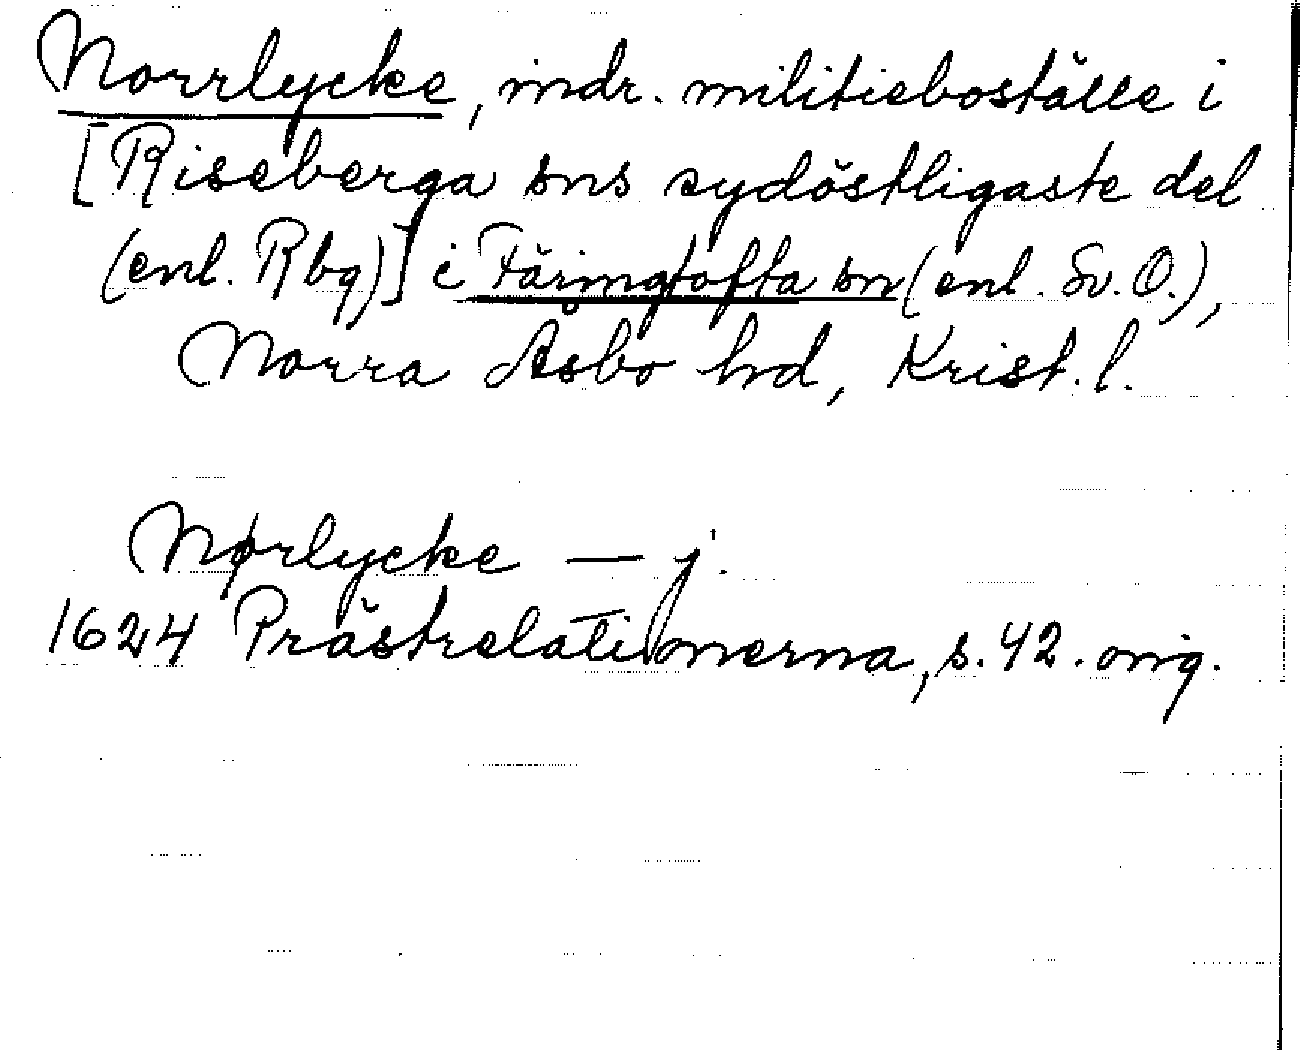 Norrlycke, indr. militieboställe i
[Riseberga sns sydöstligaste del
(enl. Rbg)] i Färingtofta sn (enl. Sv. O.),
Norra Åsbo hd, Krist. l.
Nørlycke — j.
1624 Prästrelationerna, s. 42. orig.